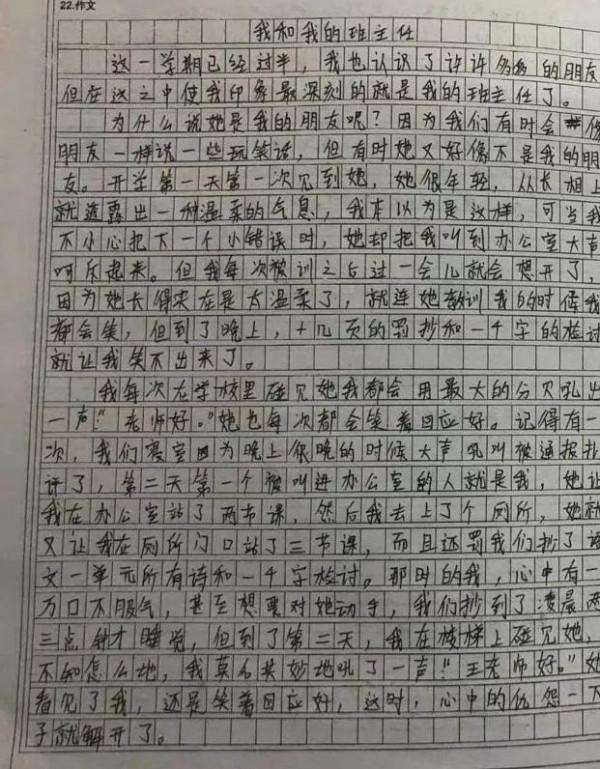 22.作文
我和我的班主任
这一学期已经过半，我也认识了许许多多的朋友
但在这之中使我印象最深刻的就是我的班主任了。
为什么说她是我的朋友呢？因为我们有时会像
朋友一样说一些玩笑话，但有时她又好像不是我的朋
友。开学第一天第一次见到她，她很年轻，从长相上
就透露出一种温柔的气息，我本以为是这样，可当我
不小心犯下一个小错误时，她却把我叫到办公室大声
呵斥起来。但我每次被训之后过一会儿就会想开了，
因为她长得实在是太温柔了，就连她教训我的时候我
都会笑，但到了晚上，十几页的罚抄和一千字的检讨
就让我笑不出来了。
我每次在学校里碰见她我都会用最大的分贝吼出
一声“老师好。”她也每次都会笑着回应好。记得有一
次，我们寝室因为晚上很晚的时候大声吼叫被通报批
评了，第二天第一个被叫进办公室的人就是我，她让
我在办公室站了两节课，然后我去上了个厕所，她就
又让我在厕所门口站了三节课，而且还罚我们抄了语
文一单元所有诗和一千字检讨。那时的我，心中有一
万口不服气，甚至想要对她动手，我们抄到了凌晨两
三点钟才睡觉，但到了第二天，我在楼梯上碰见她，
不知怎么地，我莫名其妙地吼了一声“王老师好。”她
看见了我，还是笑着回应好，这时，心中的仇怨一下
子就解开了。